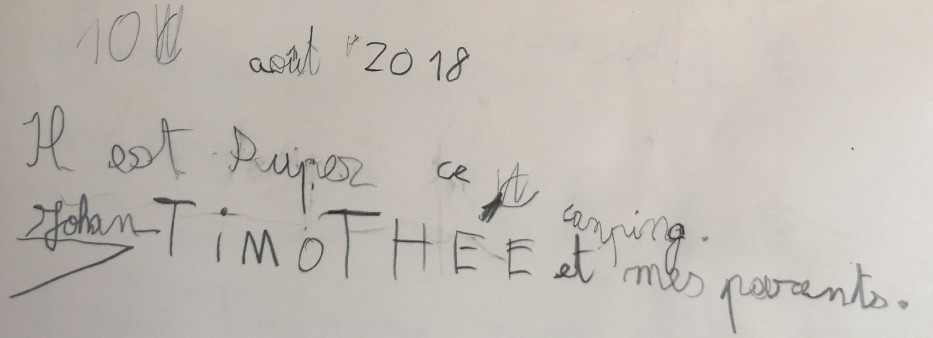 10 août 2018
Il est super ce camping.
Johan TiMOTHEE et mes parents.